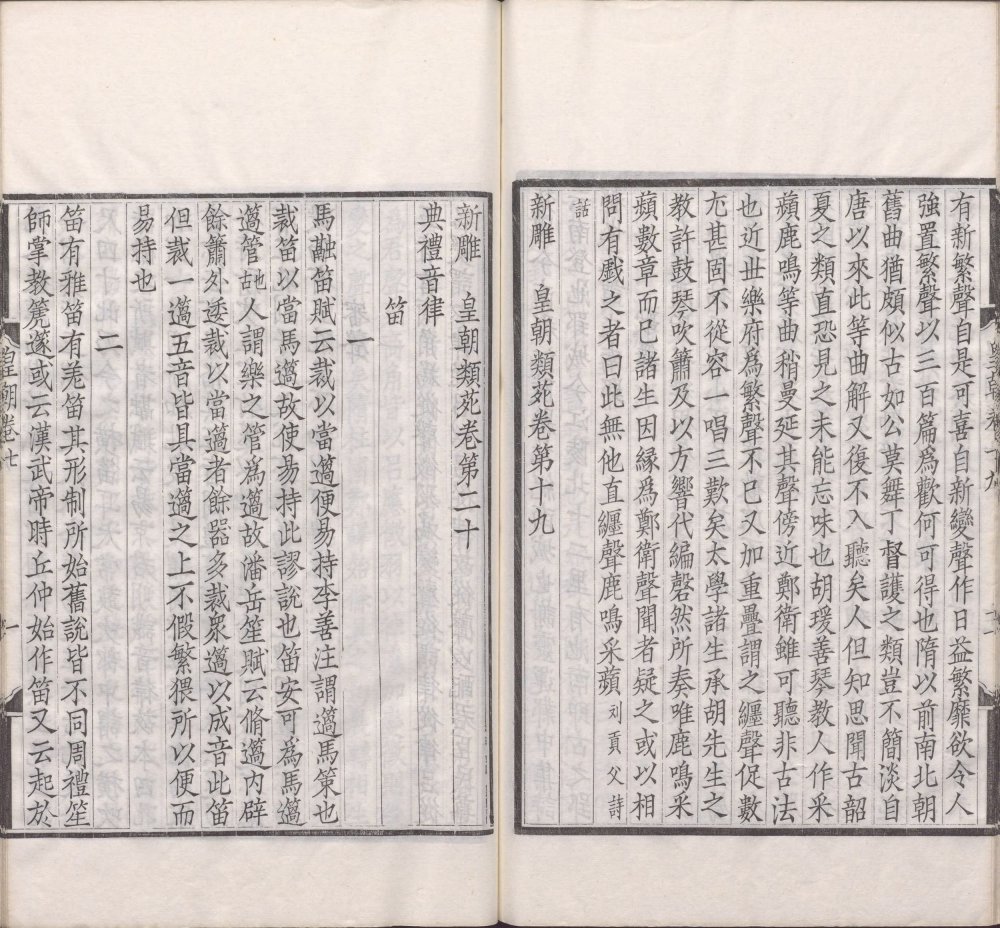 有新繁聲自是可喜自新變聲作日益繁靡欲令人
強置繁聲以三百篇為歡何可得也隋以前南北朝
舊曲猶頗似古如公莫舞丁督護之類豈不簡淡自
唐以來此等曲解又復不入聽矣人但知思聞古韶
夏之類直恐見之未能忘味也胡瑗善琴教人作采
蘋鹿鳴等曲稍曼延其聲傍近鄭衛雖可聽非古法
也近世樂府為繁聲不已又加重疊謂之纏聲促數
尤甚固不從容一唱三歎矣太學諸生承胡先生之
教許鼓琴吹簫及以方響代編磬然所奏唯鹿鳴采
蘋數章而已諸生因緣為鄭衛聲聞者疑之或以相
問有戲之者曰此無他直纏聲鹿鳴采蘋 刘貢父詩
話
新雕 皇朝類苑卷第十九
新雕 皇朝類苑卷第二十
典禮音律
笛
一
馬融笛賦云裁以當簻便易持李善注謂簻馬策也
裁笛以當馬簻故使易持此謬說也笛安可為馬簻
簻管也古人謂樂之管為簻故潘岳笙賦云脩簻內辟
餘簫外逶裁以當簻者餘器多裁眾簻以成音此笛
但裁一簻五音皆具當簻之上不假繁猥所以便而
易持也
二
笛有雅笛有羌笛其形制所始舊說皆不同周禮笙
師掌教箎篴或云漢武帝時丘仲始作笛又云起於
皇朝卷廿
一